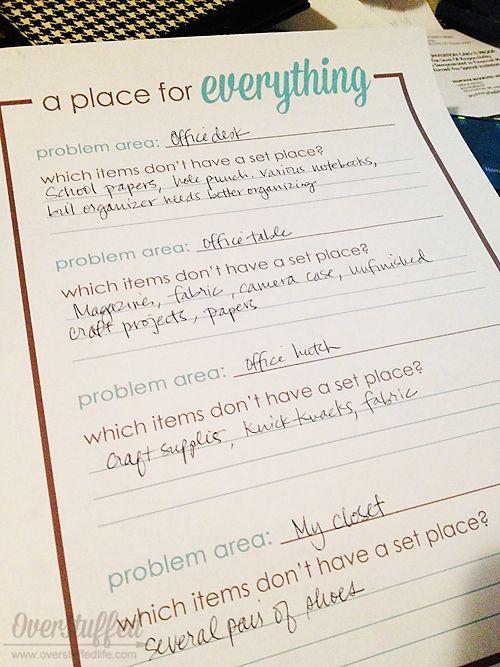 a place for everything
problem area: Office desk
which items don't have a set place?
School papers, hole punch, various notebooks,
bill organizer needs better organizing
problem area: office table
which items don't have a set place?
Magazines, fabric, camera case, unfinished
craft projects, papers
problem area: office hutch
which items don't have a set place?
craft supplies, knick knacks, fabric
problem area: My closet
which items don't have a set place?
several pair of shoes
Overstuffed
www.overstuffedlife.com